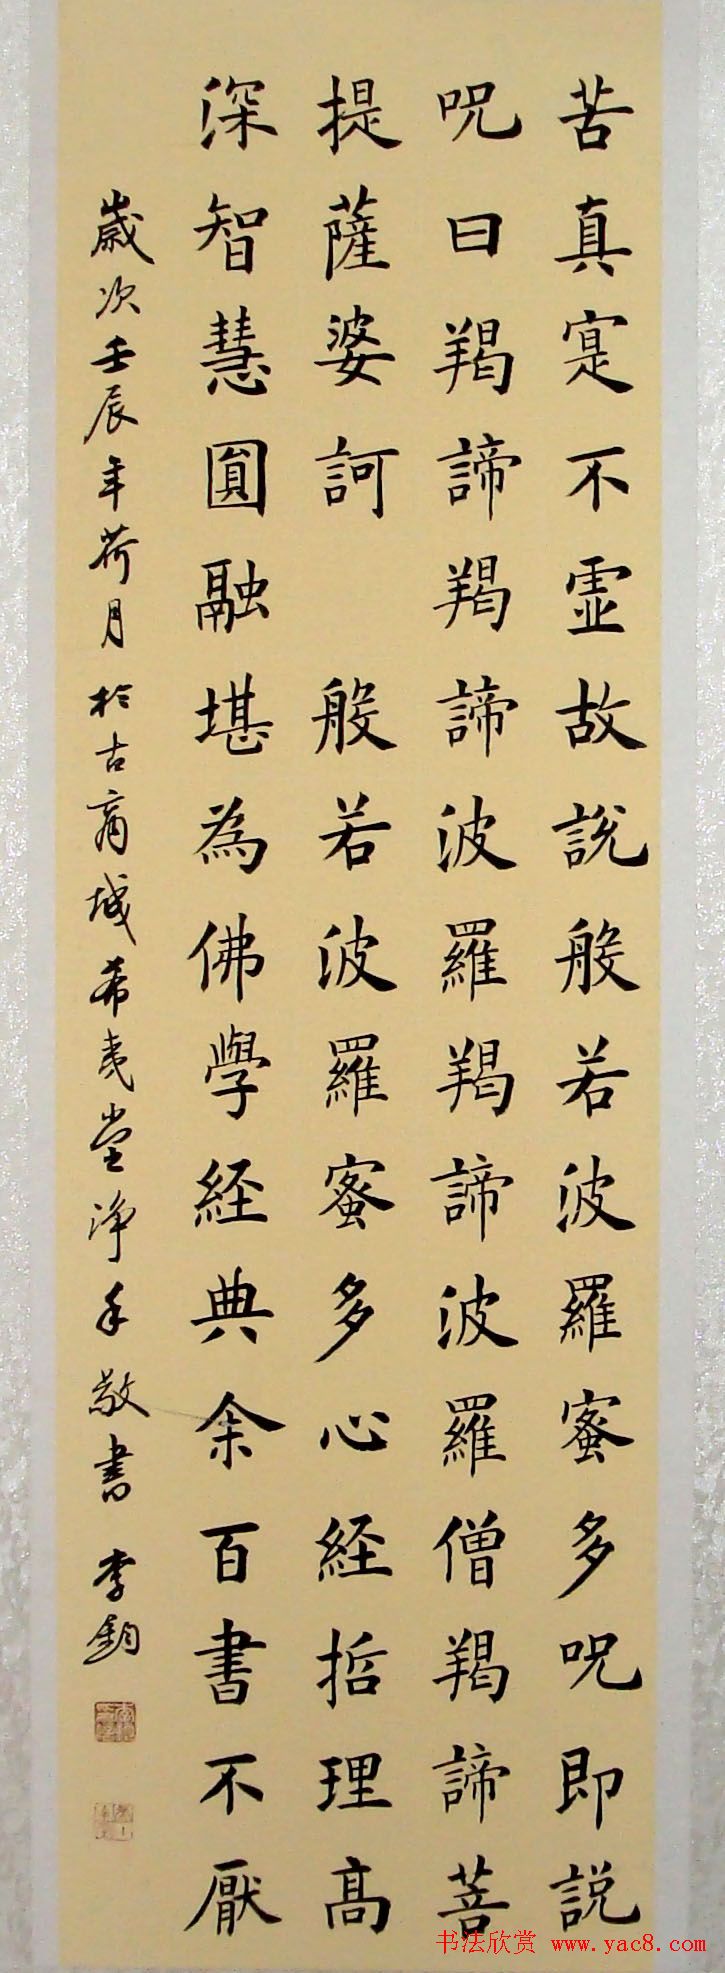 苦真寔不虛故說般若波羅蜜多呪即說
呪曰羯諦羯諦波羅羯諦波羅僧羯諦菩
提薩婆訶 般若波羅蜜多心経哲理高
深智慧圓融堪為佛學経典余百書不厭
歲次壬辰年荷月於古商城希夷堂净手敬書 李鈞
书法欣赏 www.yac8.com